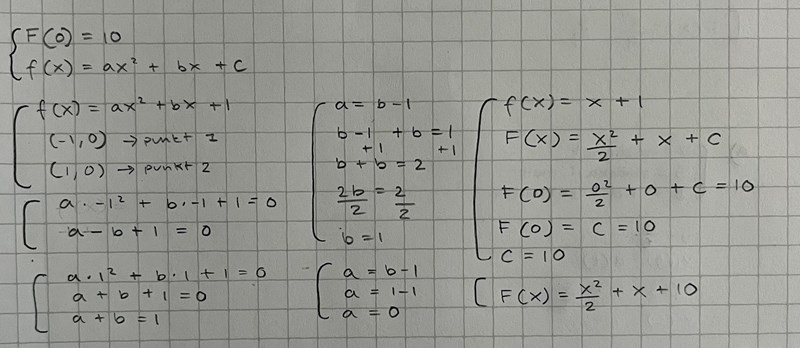 F(0) = 10
f(x) = ax² + bx + c
f(x) = ax² + bx + 1
(-1,0) → punkt 1
(1,0) → punkt 2
a · -1² + b · -1 + 1 = 0
a - b + 1 = 0
a · 1² + b · 1 + 1 = 0
a + b + 1 = 0
a + b = 1
a = b - 1
b - 1 + b = 1
+1 +1
b + b = 2
2b/2 = 2/2
b = 1
a = b - 1
a = 1 - 1
a = 0
f(x) = x + 1
F(x) = x²/2 + x + C
F(0) = 0²/2 + 0 + C = 10
F(0) = C = 10
C = 10
F(x) = x²/2 + x + 10